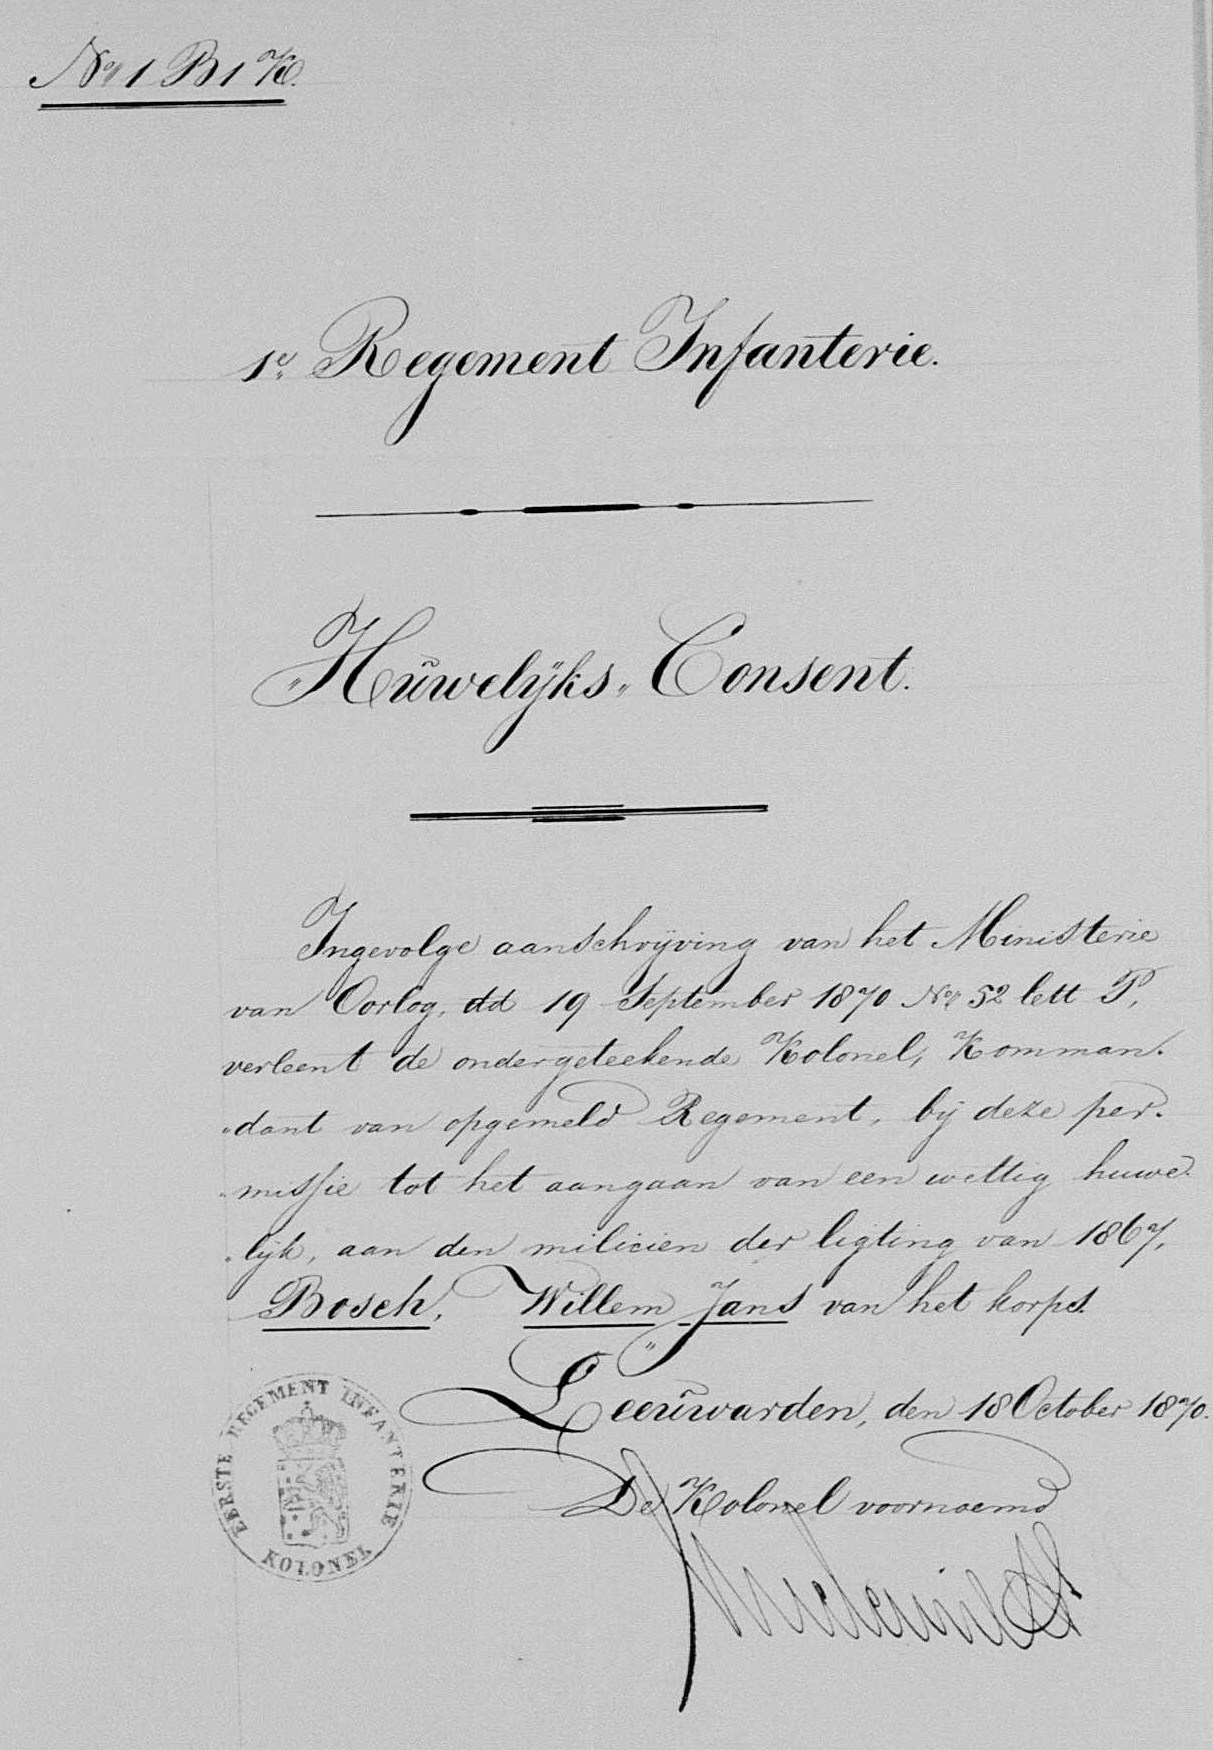 No 1 B 1 K.
1e Regement Infanterie.
"Huwelijks" Consent.
Ingevolge aanschrijving van het Ministerie
van Oorlog, dd 19 September 1870 No 52 lett P,
verleent de ondergeteekende Kolonel, Komman-
"dant van opgemeld Regement, bij deze per-
"missie tot het aangaan van een wettig huwe-
"lijk, aan den milicien der ligting van 1867,
Bosch, Willem Jans van het korps.
Leeuwarden, den 18 October 1870.
De Kolonel voornoemd
EERSTE REGEMENT INFANTERIE
KOLONEL